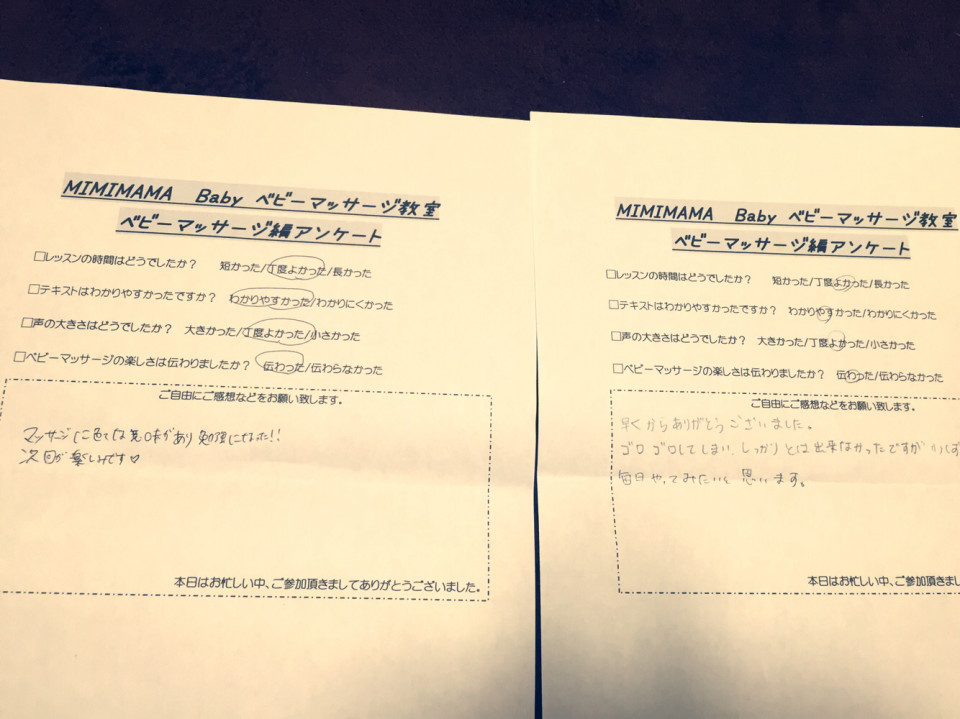 MIMIMAMA Baby ベビーマッサージ教室
ベビーマッサージ編アンケート
□レッスンの時間はどうでしたか? 短かった/丁度よかった/長かった
□テキストはわかりやすかったですか? わかりやすかった/わかりにくかった
□声の大きさはどうでしたか? 大きかった/丁度よかった/小さかった
□ベビーマッサージの楽しさは伝わりましたか? 伝わった/伝わらなかった
ご自由にご感想などをお願い致します。
マッサージに色々な意味があり勉強になった!!
次回が楽しみです♡
本日はお忙しい中、ご参加頂きましてありがとうございました。
MIMIMAMA Baby ベビーマッサージ教室
ベビーマッサージ編アンケート
□レッスンの時間はどうでしたか? 短かった/丁度よかった/長かった
□テキストはわかりやすかったですか? わかりやすかった/わかりにくかった
□声の大きさはどうでしたか? 大きかった/丁度よかった/小さかった
□ベビーマッサージの楽しさは伝わりましたか? 伝わった/伝わらなかった
ご自由にご感想などをお願い致します。
早くからありがとうございました。
ゴロゴロしてしまい、しっかりとは出来なかったですが
毎日やってみたいと思います。
本日はお忙しい中、ご参加